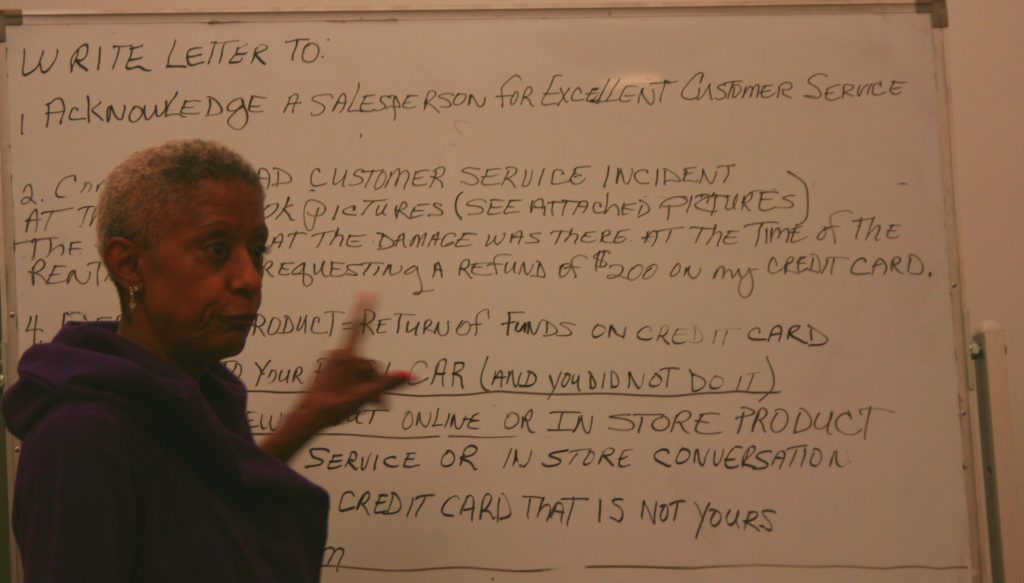 WRITE LETTER TO:
1. ACKNOWLEDGE A SALESPERSON FOR EXCELLENT CUSTOMER SERVICE
2. AD CUSTOMER SERVICE INCIDENT
AT PICTURES (SEE ATTACHED PICTURES)
THE AT THE DAMAGE WAS THERE AT THE TIME OF THE
REQUESTING A REFUND OF $200 ON MY CREDIT CARD.
4. PRODUCT = RETURN OF FUNDS ON CREDIT CARD
YOUR CAR (AND YOU DID NOT DO IT)
ONLINE OR IN STORE PRODUCT
SERVICE OR IN STORE CONVERSATION
CREDIT CARD THAT IS NOT YOURS